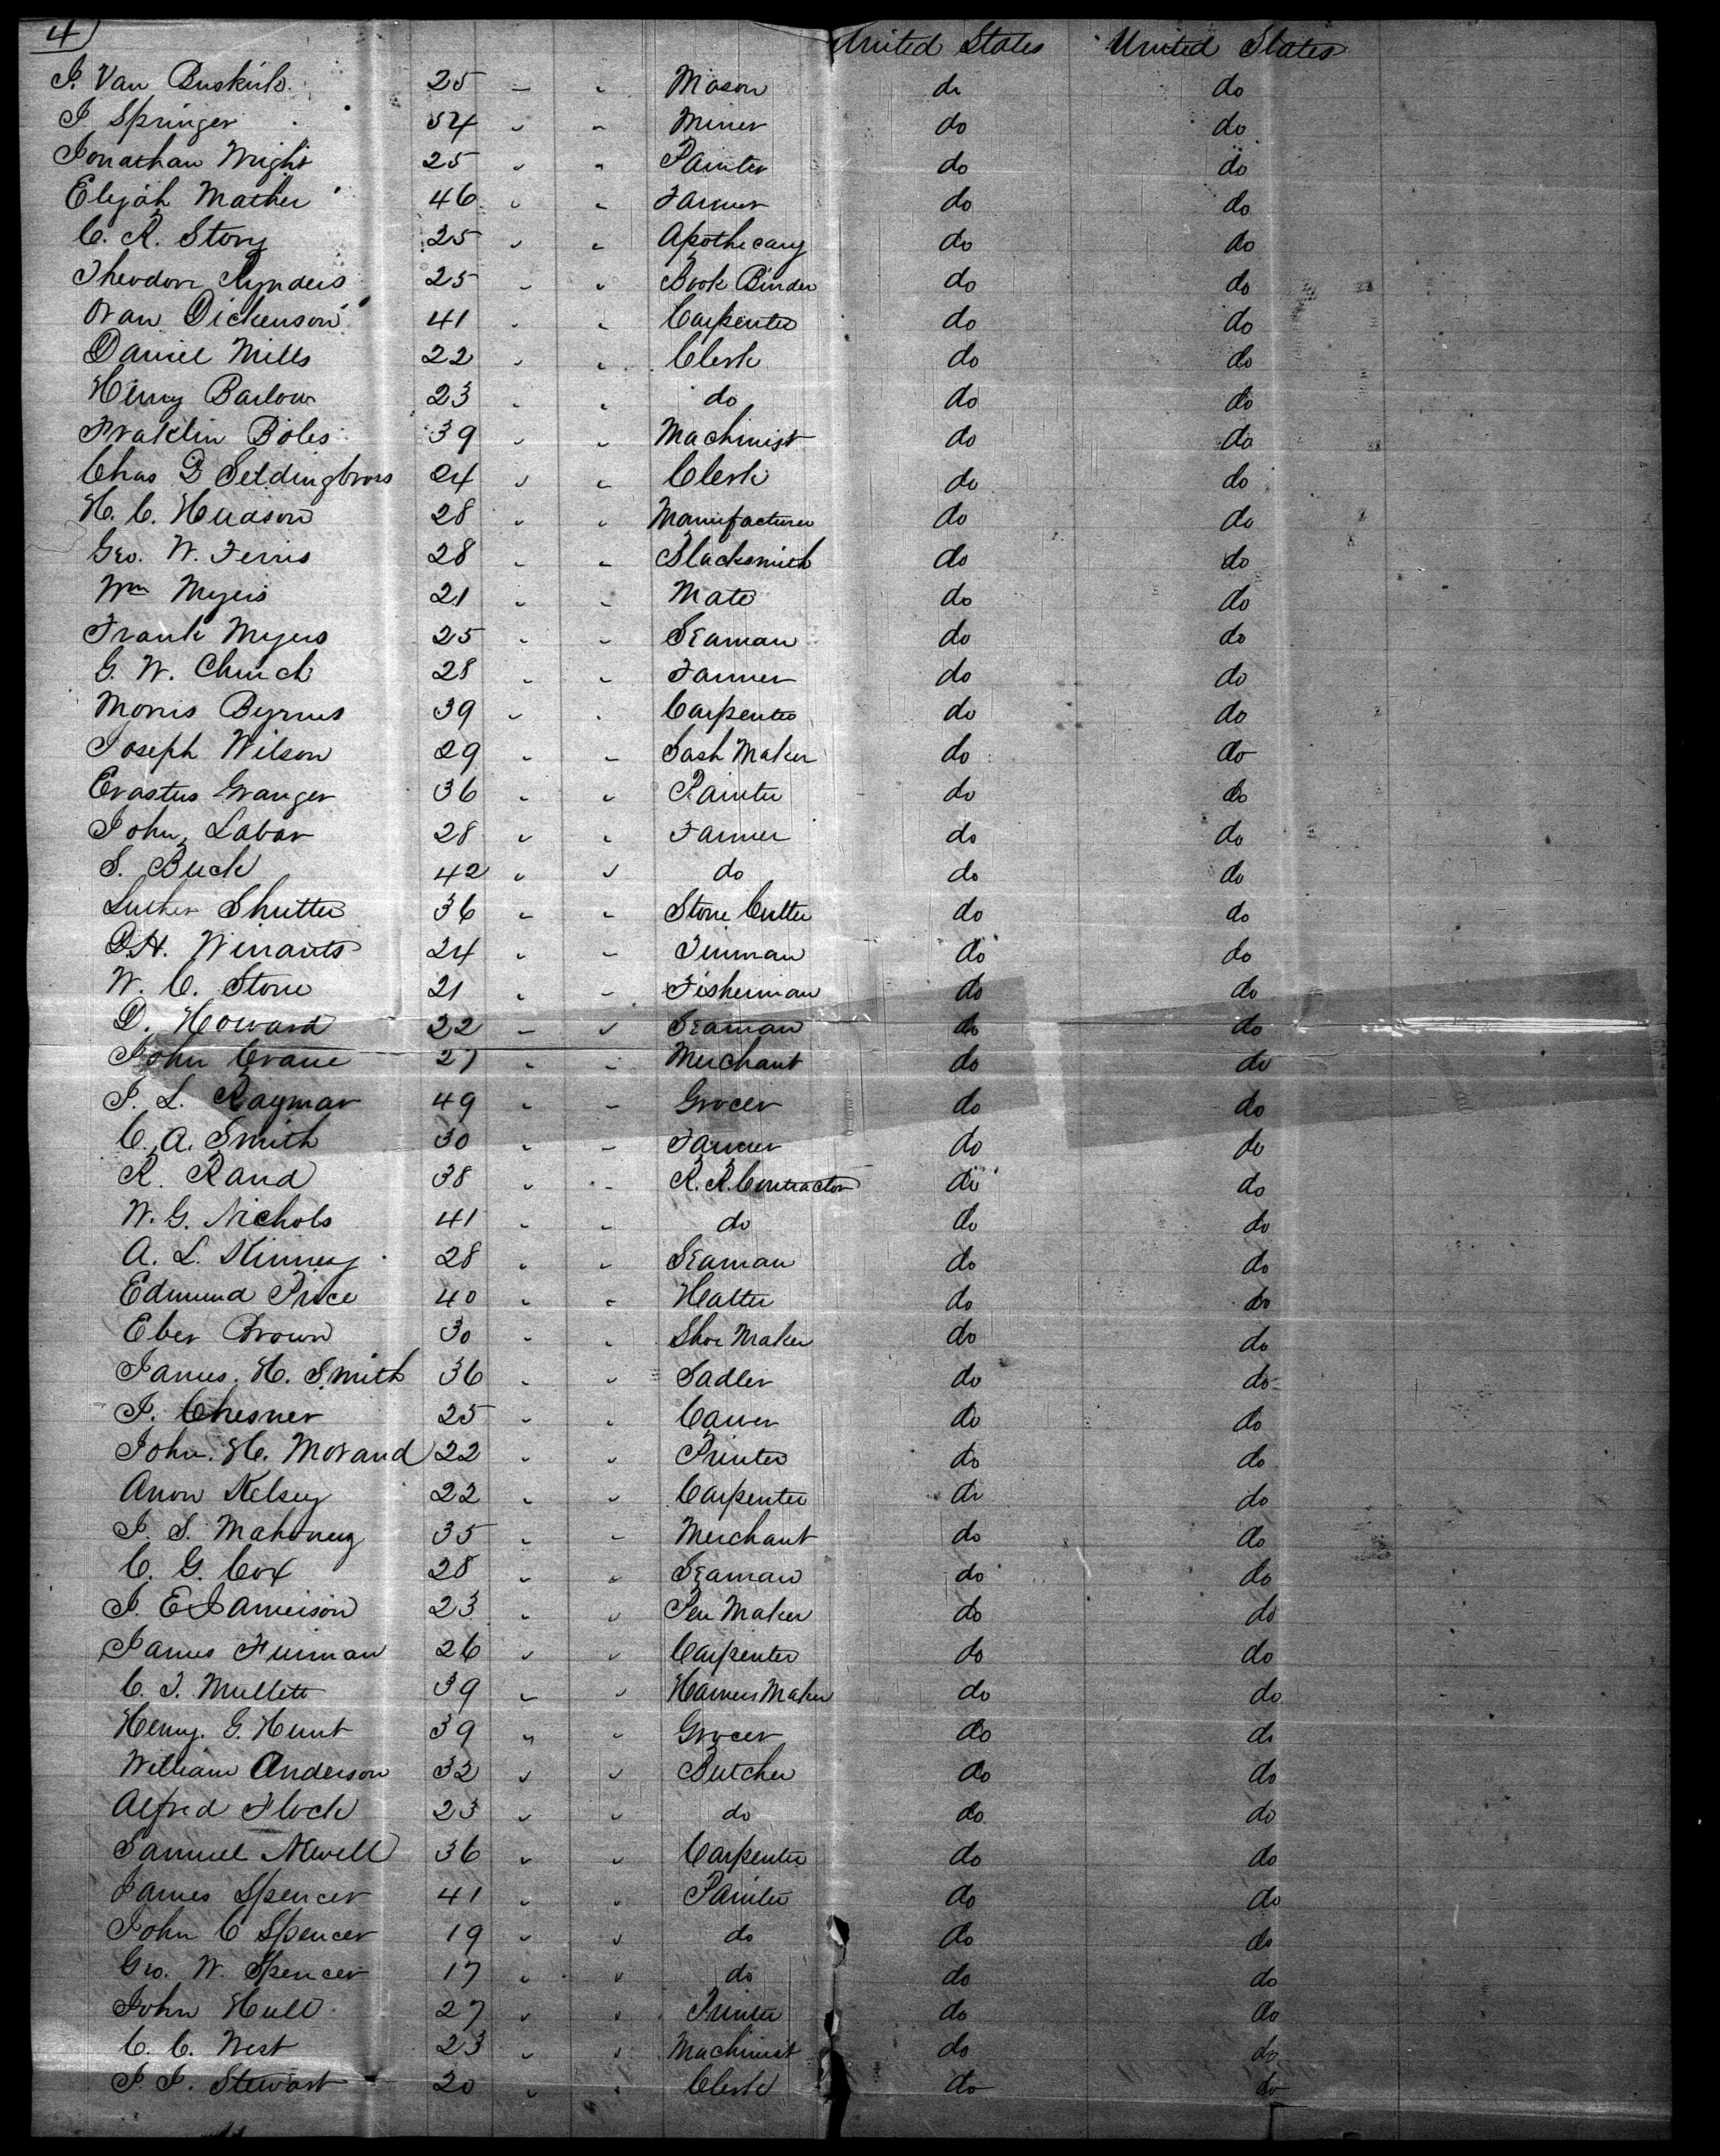 4)
United States United States
J. Van Buskirk 25 " " Mason do do
J. Springer 54 " " Miner do do
Jonathan Wright 25 " " Painter do do
Elijah Mather 46 " " Farmer do do
C. R. Story 25 " " Apothecary do do
Theodore Rynders 25 " " Book Binder do do
Oran Dickenson 41 " " Carpenter do do
Daniel Mills 22 " " Clerk do do
Henry Barlow 23 " " do do do
Fraklin Boles 39 " " Machinist do do
Chas D 24 " " Clerk do do
H. C. Hudson 28 " " Manufacturer do do
Geo. W. Ferris 28 " " Blacksmith do do
Wm Myers 21 " " Mate do do
Frank Myers 25 " " Seaman do do
G. W. Church 28 " " Farmer do do
Morris Byrnes 39 " " Carpenter do do
Joseph Wilson 29 " " Sash Maker do do
Erastus Granger 36 " " Painter do do
John Labar 28 " " Farmer do do
S. Buck 42 " " do do do
Luther Shutter 36 " " Stone Cutter do do
D.H. Winants 24 " " Tinman do do
W. C. Stone 21 " " Fisherman do do
D. Howard 22 " " Seaman do do
John Crane 27 " " Merchant do do
J. L. Raymar 49 " " Grocer do do
C. A. Smith 30 " " Farmer do do
R. Rand 38 " " R. R. Contractor do do
W. G. Nichols 41 " " do do do
A. L. Kinney 28 " " Seaman do do
Edmund Price 40 " " Hatter do do
Eber Brown 30 " " Shoe Maker do do
James. H. Smith 36 " " Sadler do do
J. Chesner 25 " " Carver do do
John. H. Morand 22 " " Printer do do
Anon Kelsey 22 " " Carpenter do do
J. S. Mahoney 35 " " Merchant do do
C. G. Cox 28 " " Seaman do do
J. E Jameison 23 " " Pen Maker do do
James Furman 26 " " Carpenter do do
C. T. Mullett 39 " " Harness Maker do do
Henry. G. Hunt 39 " " Grocer do do
William Anderson 32 " " Butcher do do
Alfred Flock 23 " " do do do
Samuel Newell 36 " " Carpenter do do
James Spencer 41 " " Painter do do
John C Spencer 19 " " do do do
Geo. W. Spencer 17 " " do do do
John Hull 27 " " Printer do do
C. C. West 23 " " Machinist do do
J. J. Stewart 20 " " Clerk do do